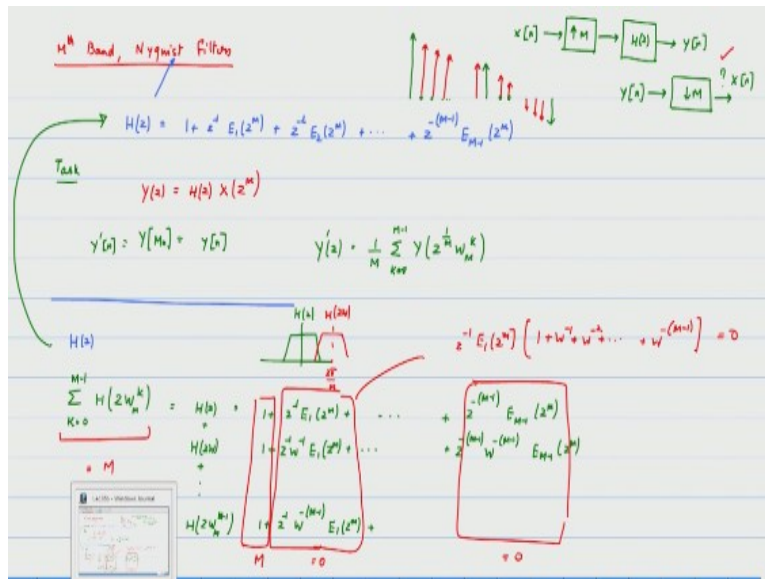 Mth Band, Nyquist Filters
x[n] → ↑M → H(z) → y[n] ✓
y[n] → ↓M → ? x[n]
H(z) = 1 + z^-1 E_1(z^M) + z^-2 E_2(z^M) + ... + z^-(M-1) E_M-1(z^M)
Task
Y(z) = H(z) X(z^M)
y'[n] = y[Mn] = y[n]
Y'(z) = 1/M Σ_{k=0}^{M-1} Y(z^{1/M} W_M^k)
H(z) H(zW)
2π/M
H(z)
z^-1 E_1(z^M) [1 + W^-1 + W^-2 + ... + W^-(M-1)] = 0
Σ_{k=0}^{M-1} H(zW_M^k) = H(z) = 1 + z^-1 E_1(z^M) + ... + z^-(M-1) E_M-1(z^M)
+
H(zW) 1 + z^-1 W^-1 E_1(z^M) + ... + z^-(M-1) W^-(M-1) E_M-1(z^M)
= M
+
:
H(zW_M^M-1) 1 + z^-1 W^-(M-1) E_1(z^M) +
M =0 =0